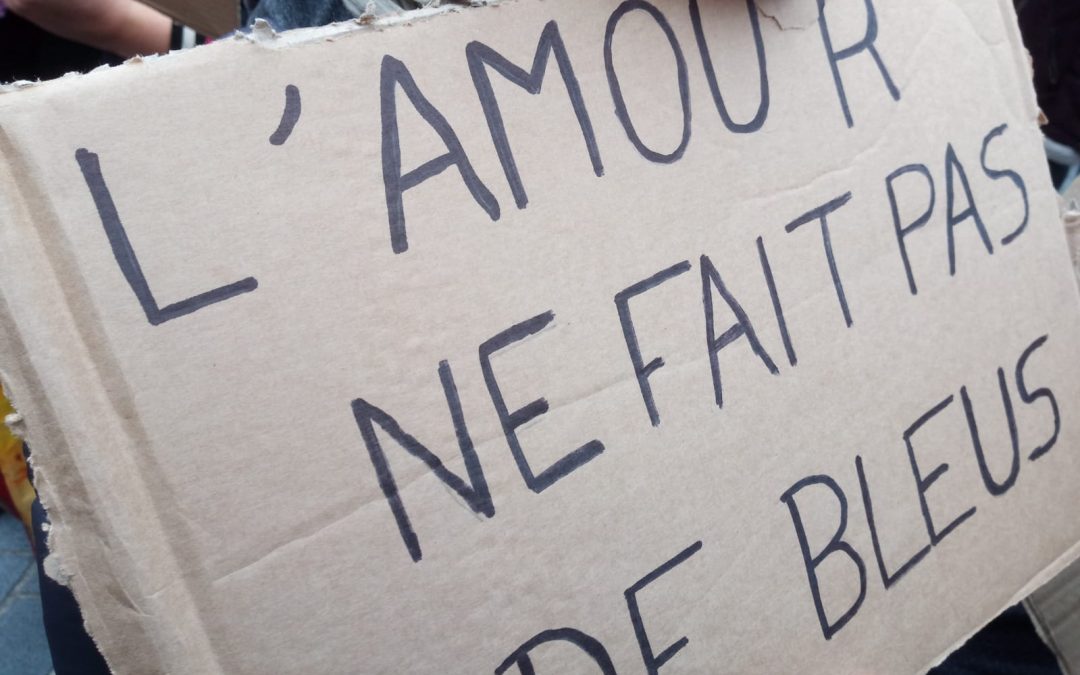 L'AMOUR
NE FAIT PAS
DE BLEUS